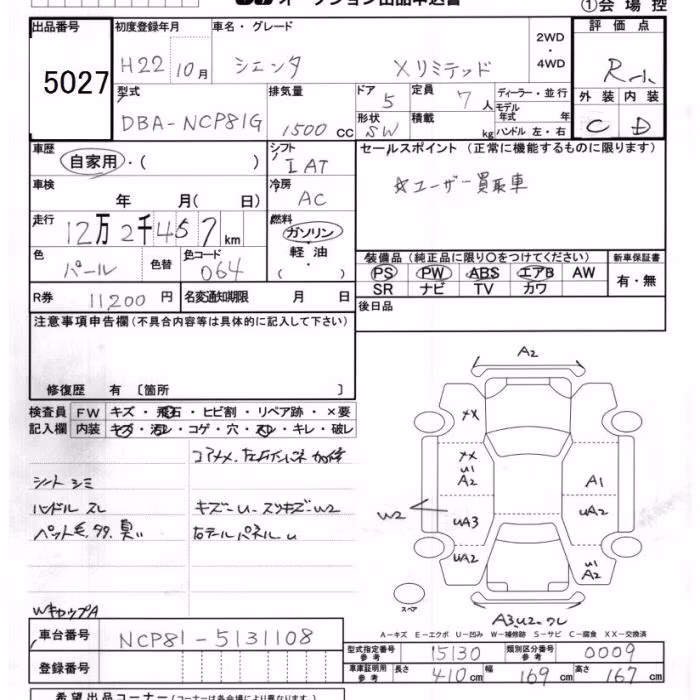 オークション出品申込書
①会場控
出品番号
5027
初度登録年月
H22 10月
車名・グレード
シエンタ Xリミテッド
2WD
・
4WD
評価点
R-小
型式
DBA-NCP81G
排気量
1500 cc
ドア
5
定員
7人
形状
SW
積載
kg
ディーラー・並行
モデル年式 年
ハンドル 左・右
外装 内装
C D
車歴
自家用・( )
シフト
IAT
セールスポイント (正常に機能するものに限ります)
☆ユーザー買取車
車検
年 月( 日)
冷房
AC
走行
12万2千457km
燃料
ガソリン
・
軽油
・
( )
色
パール
色替
色コード
064
装備品 (純正品に限り〇をつけてください)
新車保証書
PS PW ABS エアB AW
SR ナビ TV カワ
有・無
R券 11,200円
名変通知期限 月 日
後日品
注意事項申告欄 (不具合内容等は具体的に記入して下さい)
修復歴 有 〔箇所 〕
検査員
記入欄
FW キズ・飛石・ヒビ割・リペア跡・×要
内装 キズ・汚レ・コゲ・穴・スレ・キレ・破レ
シート シミ
ハンドル スレ
キズ-U-スリキズ-W2
右テールパネル U
WキャップA
A2
XX
XX
U1
A2
A1
W2
UA3
UA2
UA2
U1
A2
スペア
A-キズ E-エクボ U-凹み W-補修跡 S-サビ C-腐食 XX-交換済
車台番号
NCP81-5131108
登録番号
型式指定番号
参考
15130
類別区分番号
参考
0009
車庫証明用
参考
長さ 410cm 幅 169cm 高さ 167cm
希望出品コーナー(各会場により異なります)